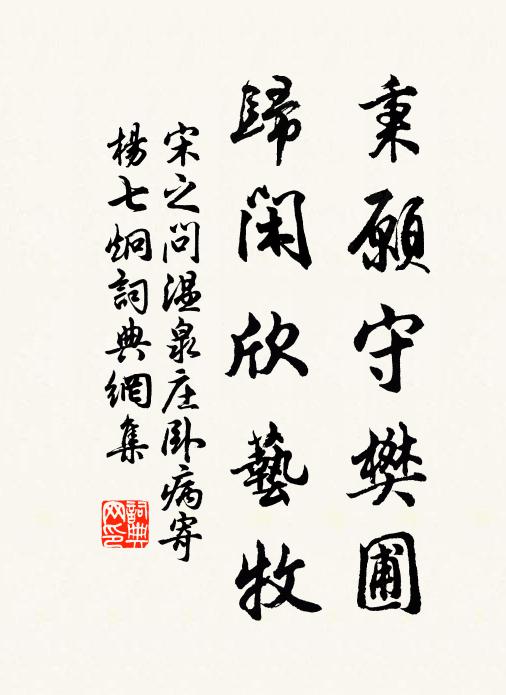 秉願守樊圃
歸閑欣藝牧
宋之问温泉庄卧病寄
楊七炯詞典網集
詞典网印